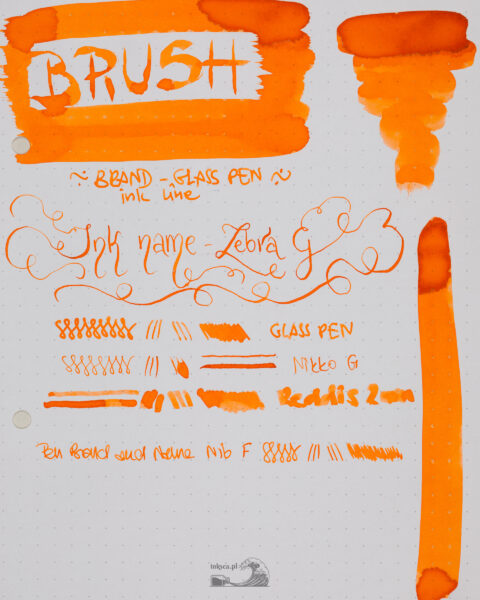 BRUSH
~ BRAND - GLASS PEN ~
ink line
Ink name - Zebra G
GLASS PEN
Nikko G
Redis 2mm
Pen Brand and Name Nib F
inkyca.pl